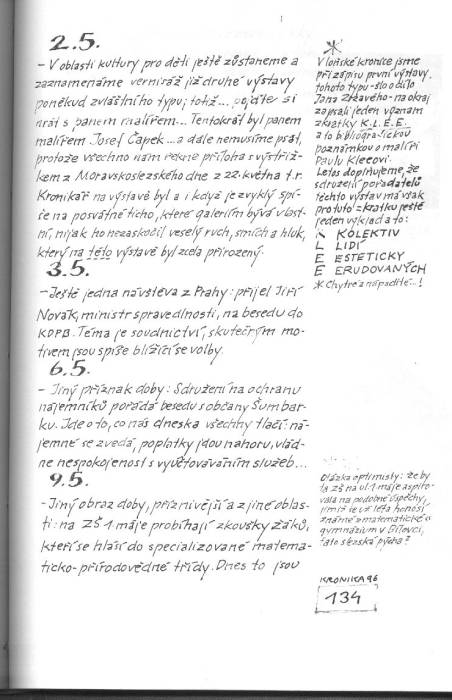 2.5.
- V oblasti kultury pro děti ještě zůstaneme a
zaznamenáme vernisáž již druhé výstavy
poněkud zvláštního typu; totiž... pojďte si
hrát s panem malířem... Tentokrát byl panem
malířem Josef Čapek... a dále nemusíme psát,
protože všechno nám řekne příloha s výstřiž-
kem z Moravskoslezského dne z 22. května t.r.
Kronikář na výstavě byl a i když je zvyklý spí-
še na posvátné ticho, které galeriím bývá vlast-
ní, nijak ho nezaskočil veselý ruch, smích a hluk,
který na této výstavě byl zcela přirozený.
3.5.
- Ještě jedna návštěva z Prahy: přijel Jiří
Novák, ministr spravedlnosti, na besedu do
KDPB. Téma je soudnictví, skutečným mo-
tivem jsou spíše blížící se volby.
6.5.
- Jiný příznak doby: Sdružení na ochranu
nájemníků pořádá besedu s občany Šumbar-
ku. Jde o to, co nás dneska všechny tlačí: ná-
jemné se zvedá, poplatky jdou nahoru, vlád-
ne nespokojenost s vyúčtováváním služeb...
9.5.
- Jiný obraz doby, příznivější a z jiné oblas-
ti: na ZŠ 1. máje probíhají zkoušky žáků,
kteří se hlásí do specializované matema-
ticko-přírodovědné třídy. Dnes to jsou
V loňské kronice jsme
při zápisu první výstavy
tohoto typu - šlo o dílo
Jana Zrzavého - na okraj
zapsali jeden význam
zkratky K.L.E.E.
a to bibliografickou
poznámkou o malíři
Paulu Kleeovi.
Letos doplňujeme, že
sdružení pořadatelů
těchto výstav má však
pro tuto zkratku ještě
jeden výklad a to:
K KOLEKTIV
L LIDÍ
E ESTETICKY
E ERUDOVANÝCH
* Chytré a nápadité...!
Otázka optimisty: že by
ta ZŠ na ul. 1. máje aspiro-
vala na podobné úspěchy,
jimiž se už léta honosí
známé "matematické"
gymnázium v Bílovci,
tato slezská pýcha?
KRONIKA 96
134